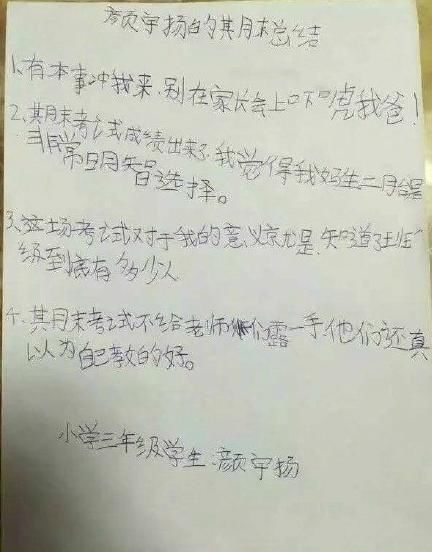 颜宇扬的期末总结
1、有本事冲我来,别在家长会上吓唬我爸!
2、期末考试成绩出来了,我觉得我妈生二月台是
非常明智选择。
3、这场考试对于我的意义就是,知道了班
级到底有多少人
4、期末考试不给老师们露一手,他们还真
以为自己教的好。
小学三年级学生:颜宇扬